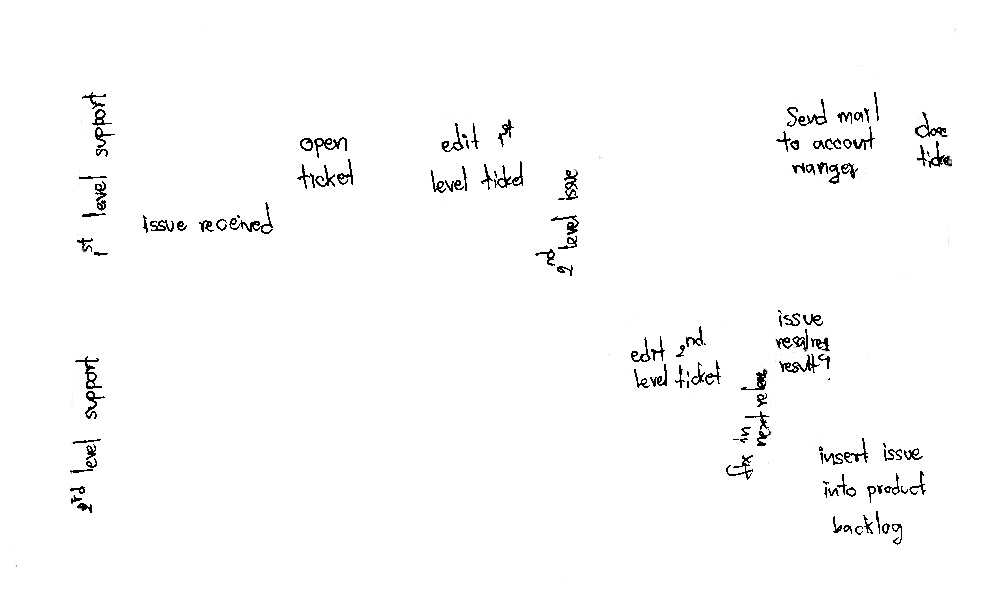 1st level support
issue received
open
ticket
edit 1st
level ticket
2nd level issue
Send mail
to account
manger
close
ticke
2nd level support
edit 2nd
level ticket
fix in
next release
issue
result?
insert issue
into product
backlog